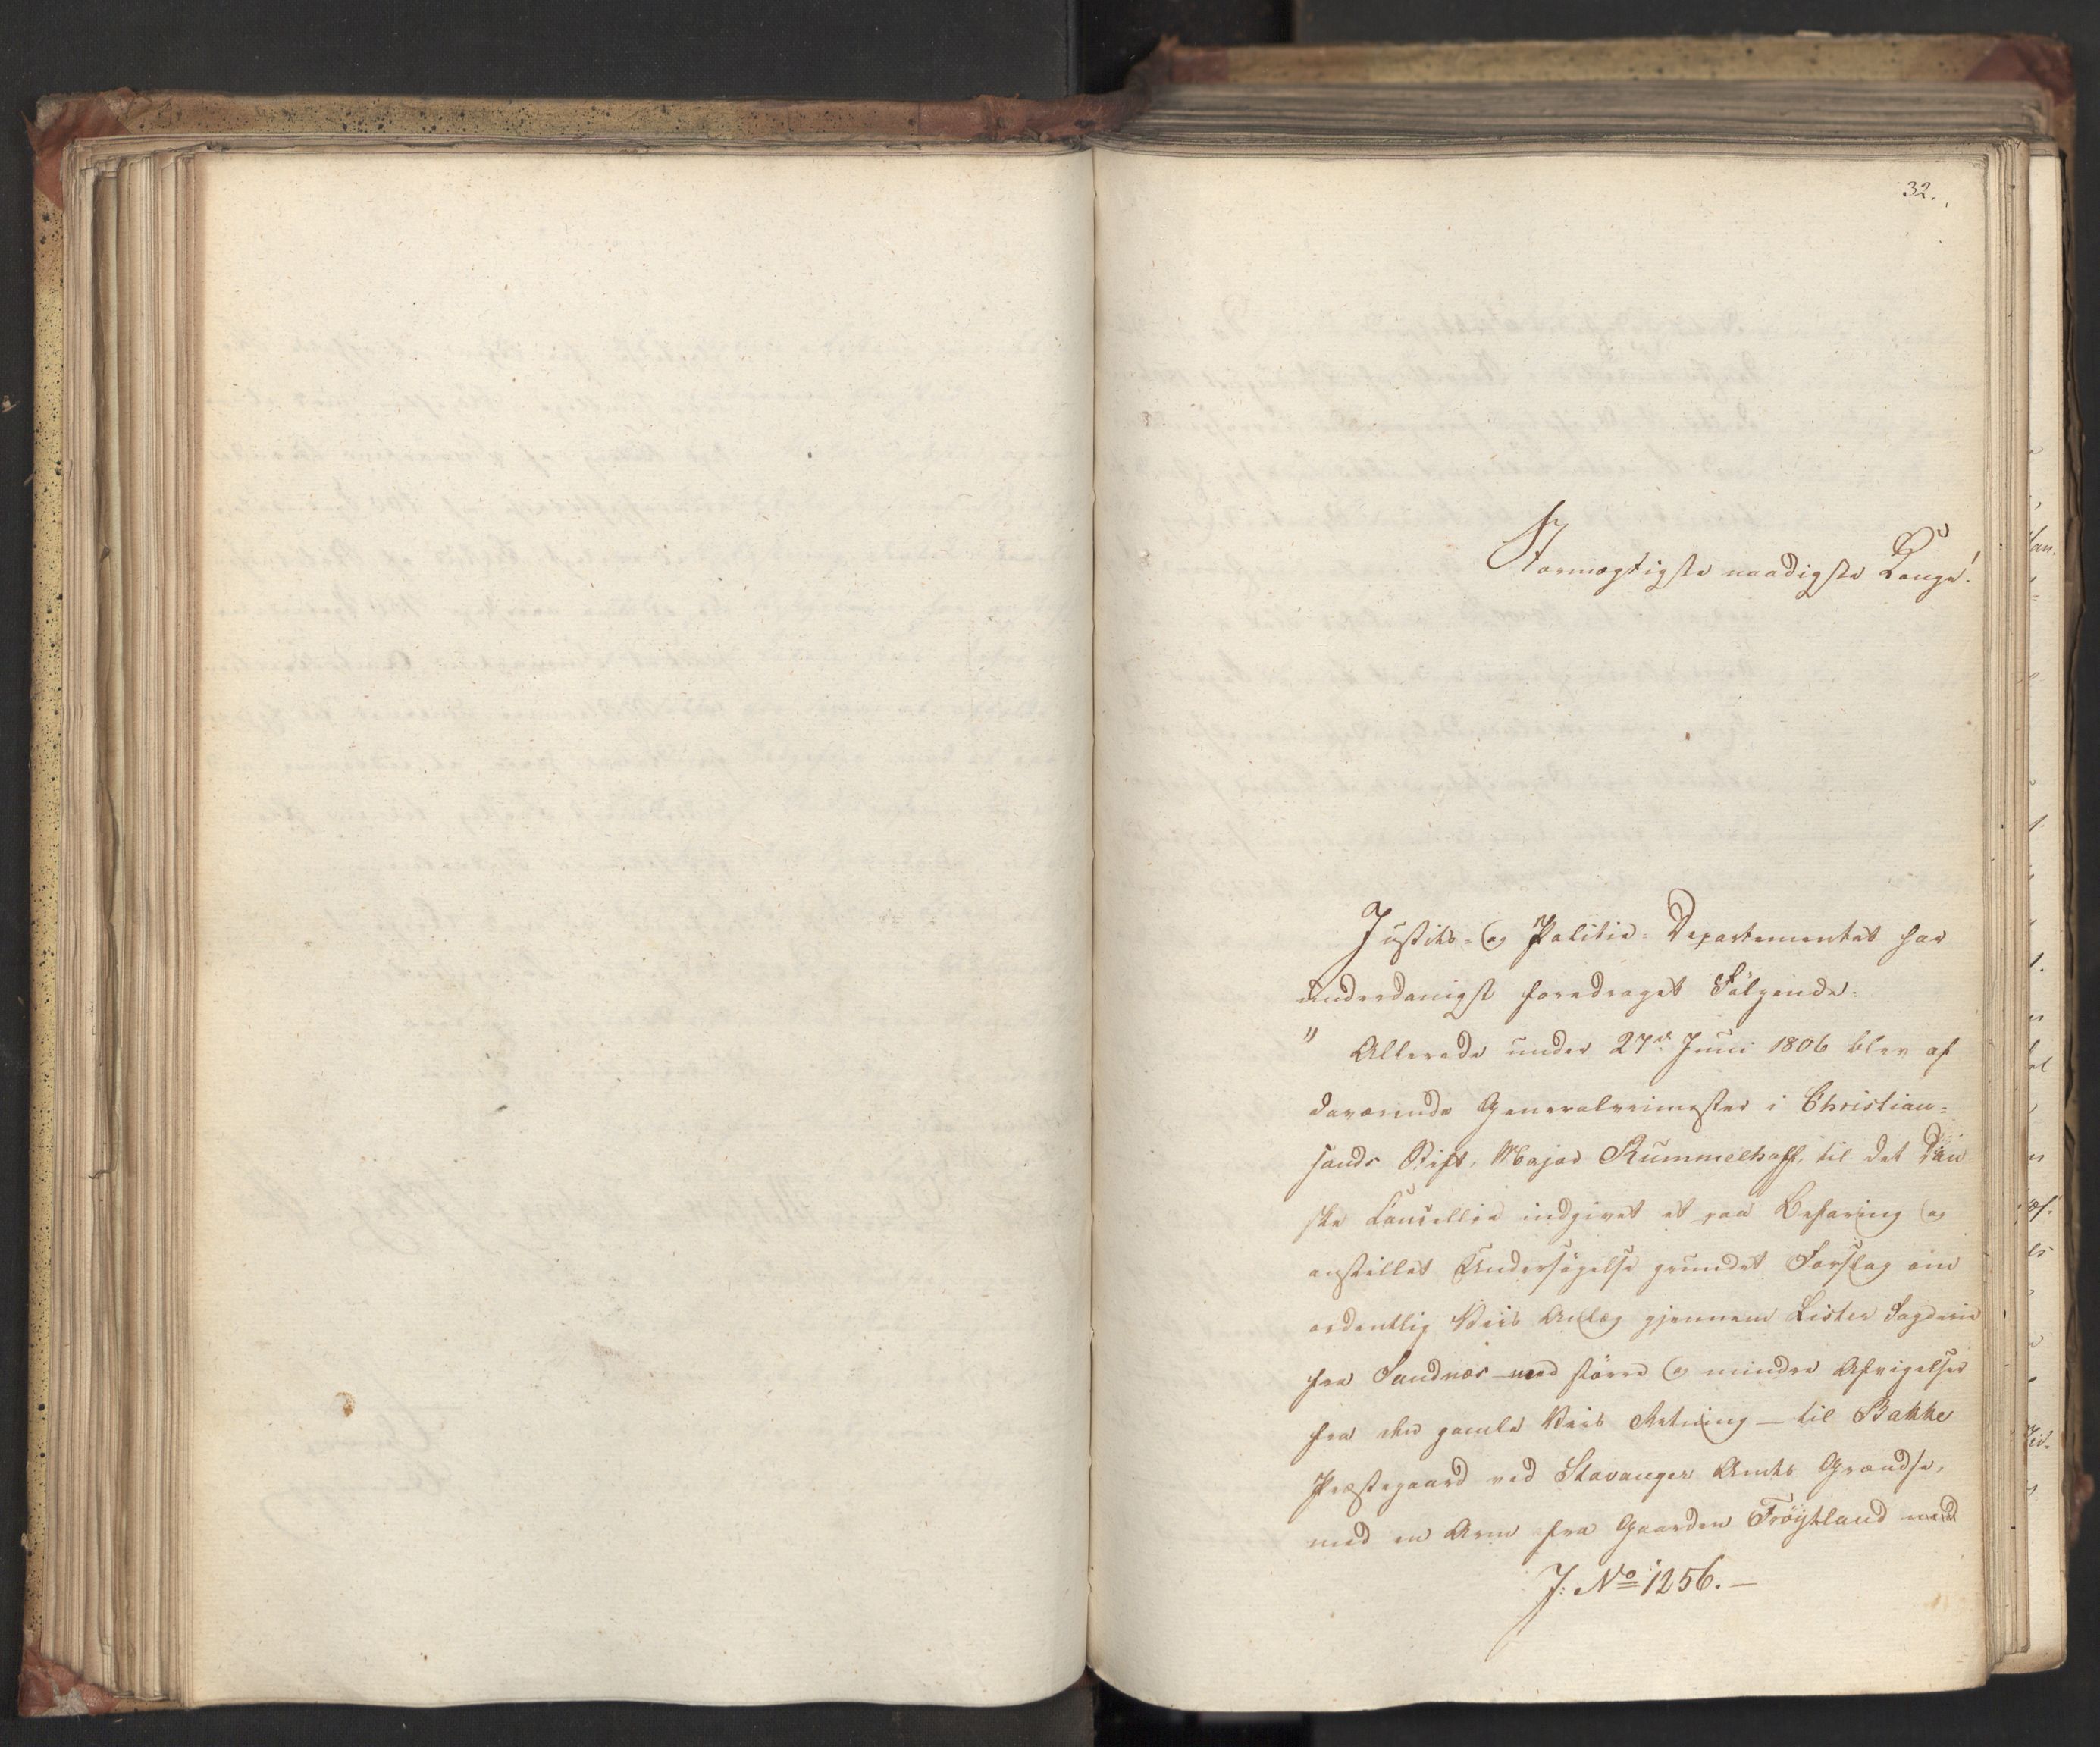 32.
Stormægtigste naadigste Konge!
Justits- og Politie-Departementet har
underdanigst foredraget Følgende:
" Allerede under 27de Juni 1806 blev af
daværende Generalveimester i Christian-
sands Stift, Major Rummelhoff, til det Dan
ske Cancellie indgivet et paa Befaring og
anstillet Undersøgelse grundet Forslag om
ordentlig Veis Anlæg gjennem Lister Fogderie
fra Sandnæs med større og mindre Afvigelser
fra den gamle Veis Retning – til Bakke
Præstegaard ved Stavanger Amts Grændse,
med en Arm fra Gaarden Frøytland ned
J: No 1256. –